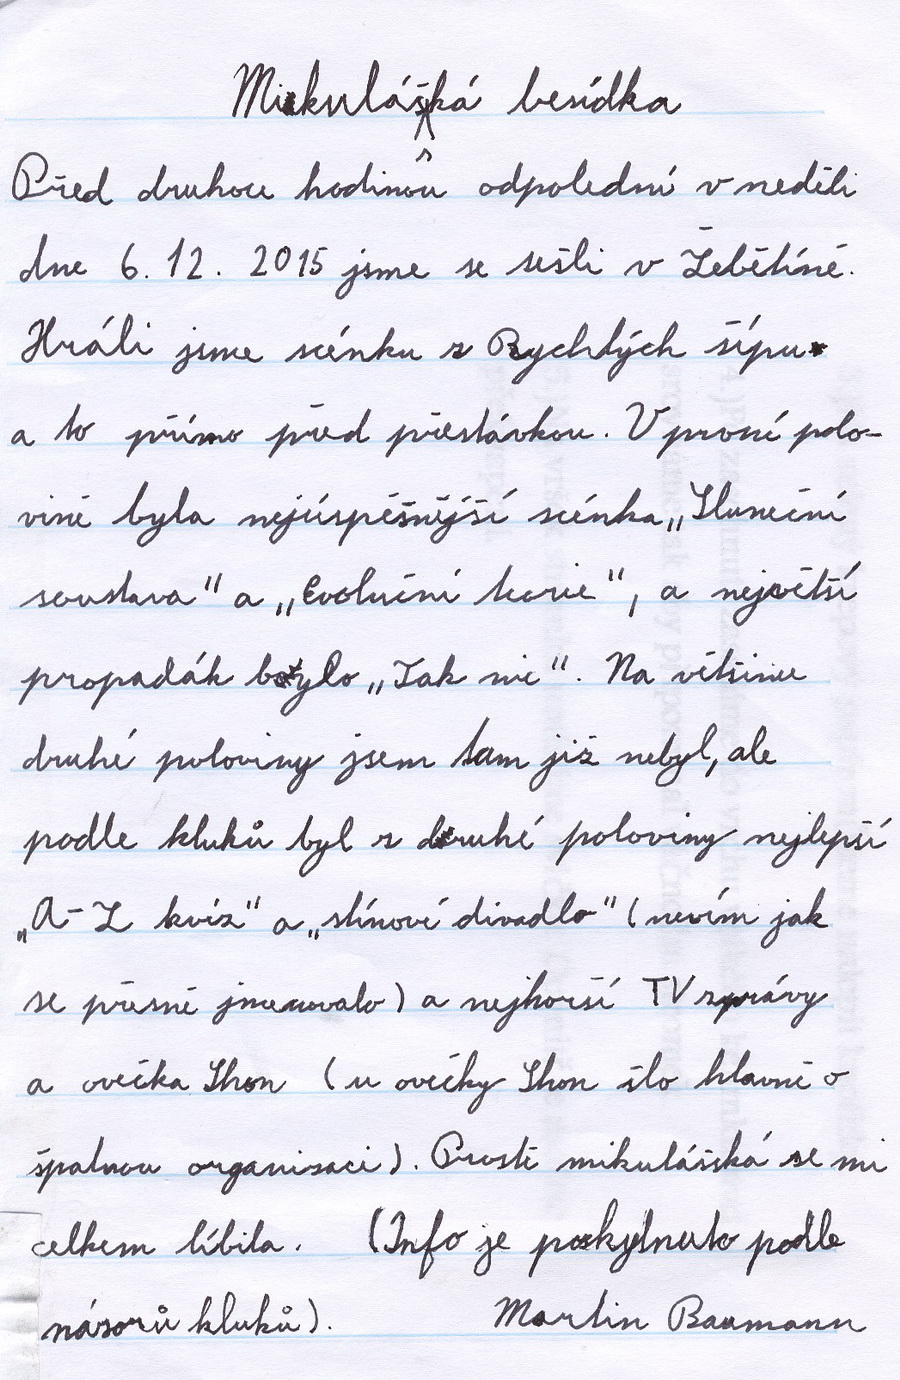 Mikulášská besídka
Před druhou hodinou odpolední v neděli
dne 6. 12. 2015 jsme se sešli v Žebětíně.
Hráli jsme scénku z Rychlých šípu
a to přímo před přestávkou. V první polo-
vině byla nejúspěšnější scénka „Sluneční
soustava" a „Evoluční teorie", a největší
propadák bylo „Tak nic". Na většinu
druhé poloviny jsem tam již nebyl, ale
podle kluků byl z druhé poloviny nejlepší
„A-Z kvíz" a „stínové divadlo" (nevím jak
se přesně jmenovalo) a nejhorší TV zprávy
a ovečka Shon (u ovečky Shon šlo hlavně o
špatnou organizaci). Prostě mikulášská se mi
celkem líbila. (Info je poskytnuto podle
názorů kluků). Martin Baumann